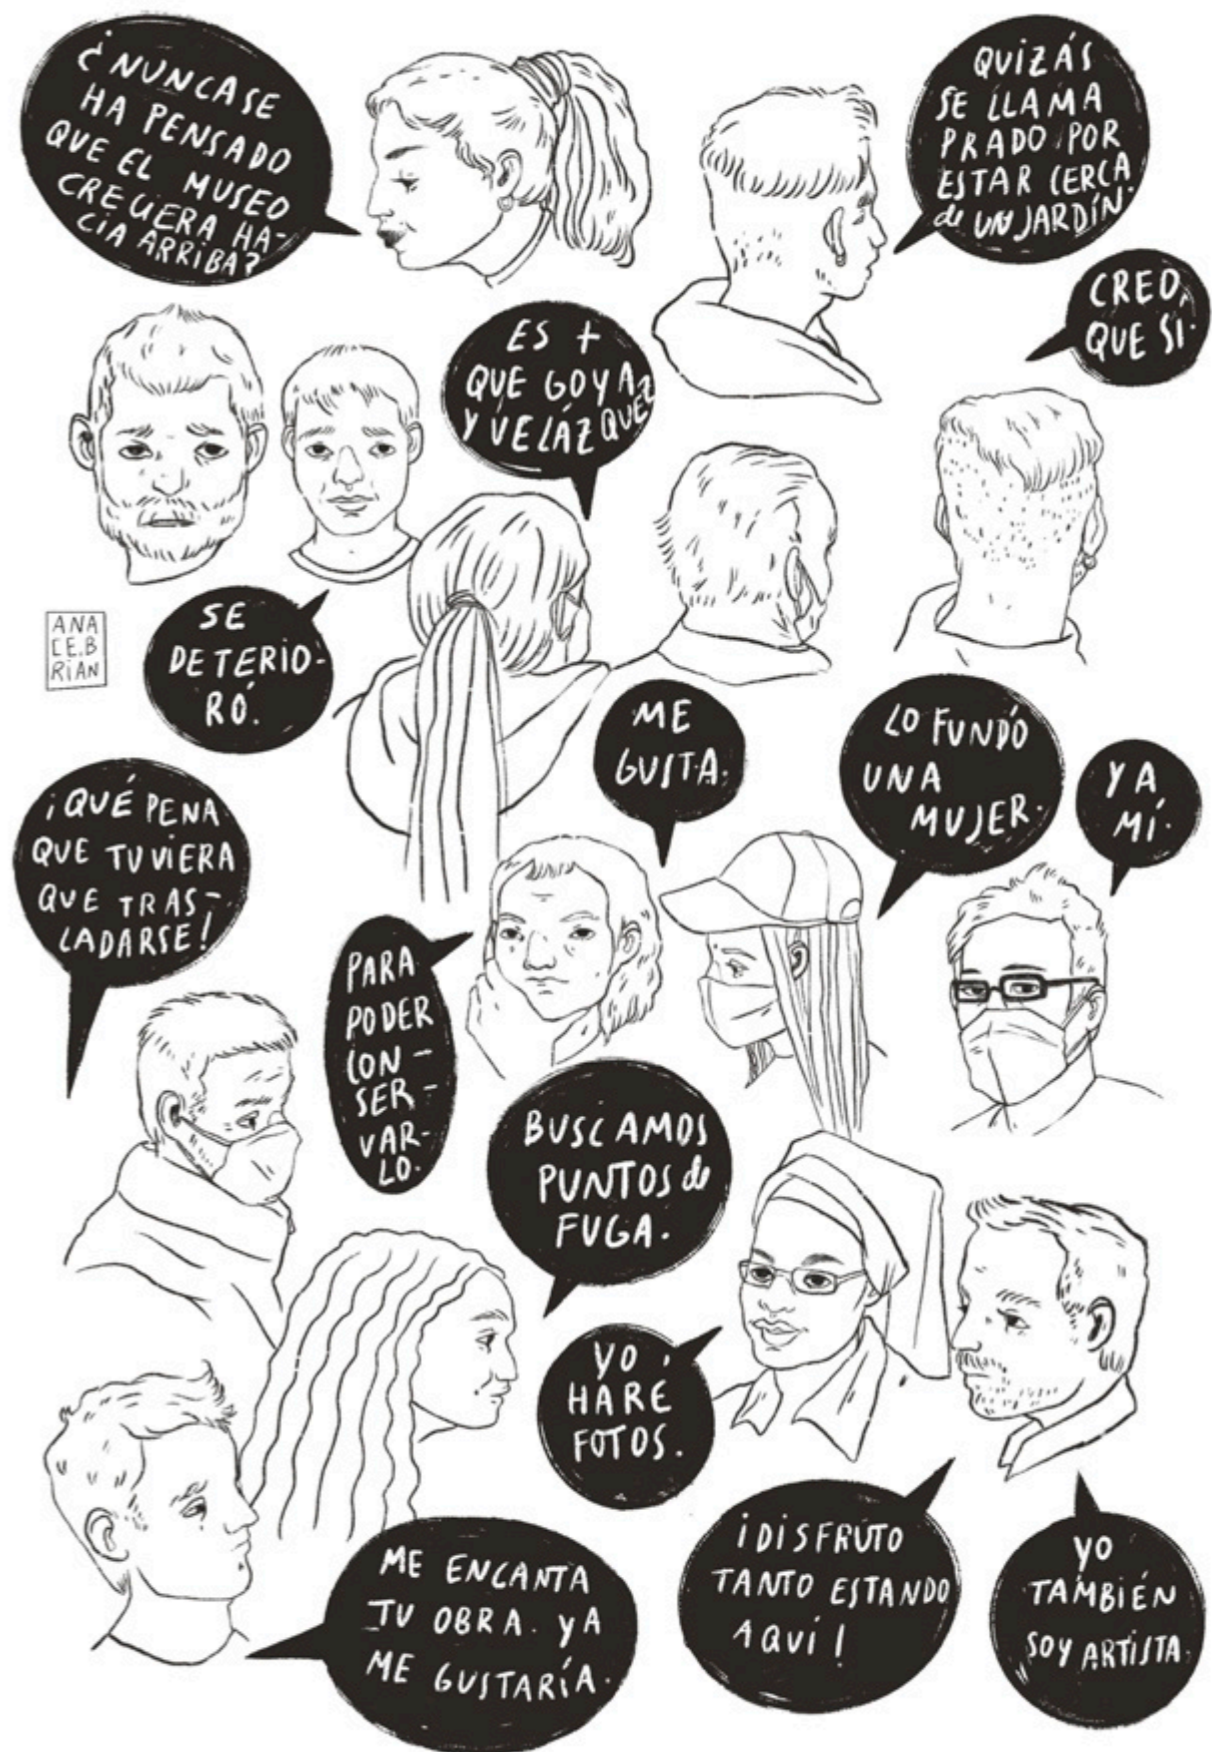 ¿NUNCA SE
HA PENSADO
QUE EL MUSEO
CRECIERA HA-
CIA ARRIBA?
QUIZÁS
SE LLAMA
PRADO POR
ESTAR CERCA
de UN JARDÍN.
CREO
QUE SI.
ES +
QUE GOYA
Y VELÁZQUEZ
SE
DETERIO-
RÓ.
ANA
CEB
RIAN
ME
GUSTA.
LO FUNDÓ
UNA
MUJER.
Y A
MÍ.
¡QUÉ PENA
QUE TUVIERA
QUE TRAS-
LADARSE!
PARA
PODER
CON-
SER-
VAR-
LO.
BUSCAMOS
PUNTOS de
FUGA.
YO
HARÉ
FOTOS.
ME ENCANTA
TU OBRA. YA
ME GUSTARÍA.
¡DISFRUTO
TANTO ESTANDO
AQUÍ!
YO
TAMBIÉN
SOY ARTISTA.